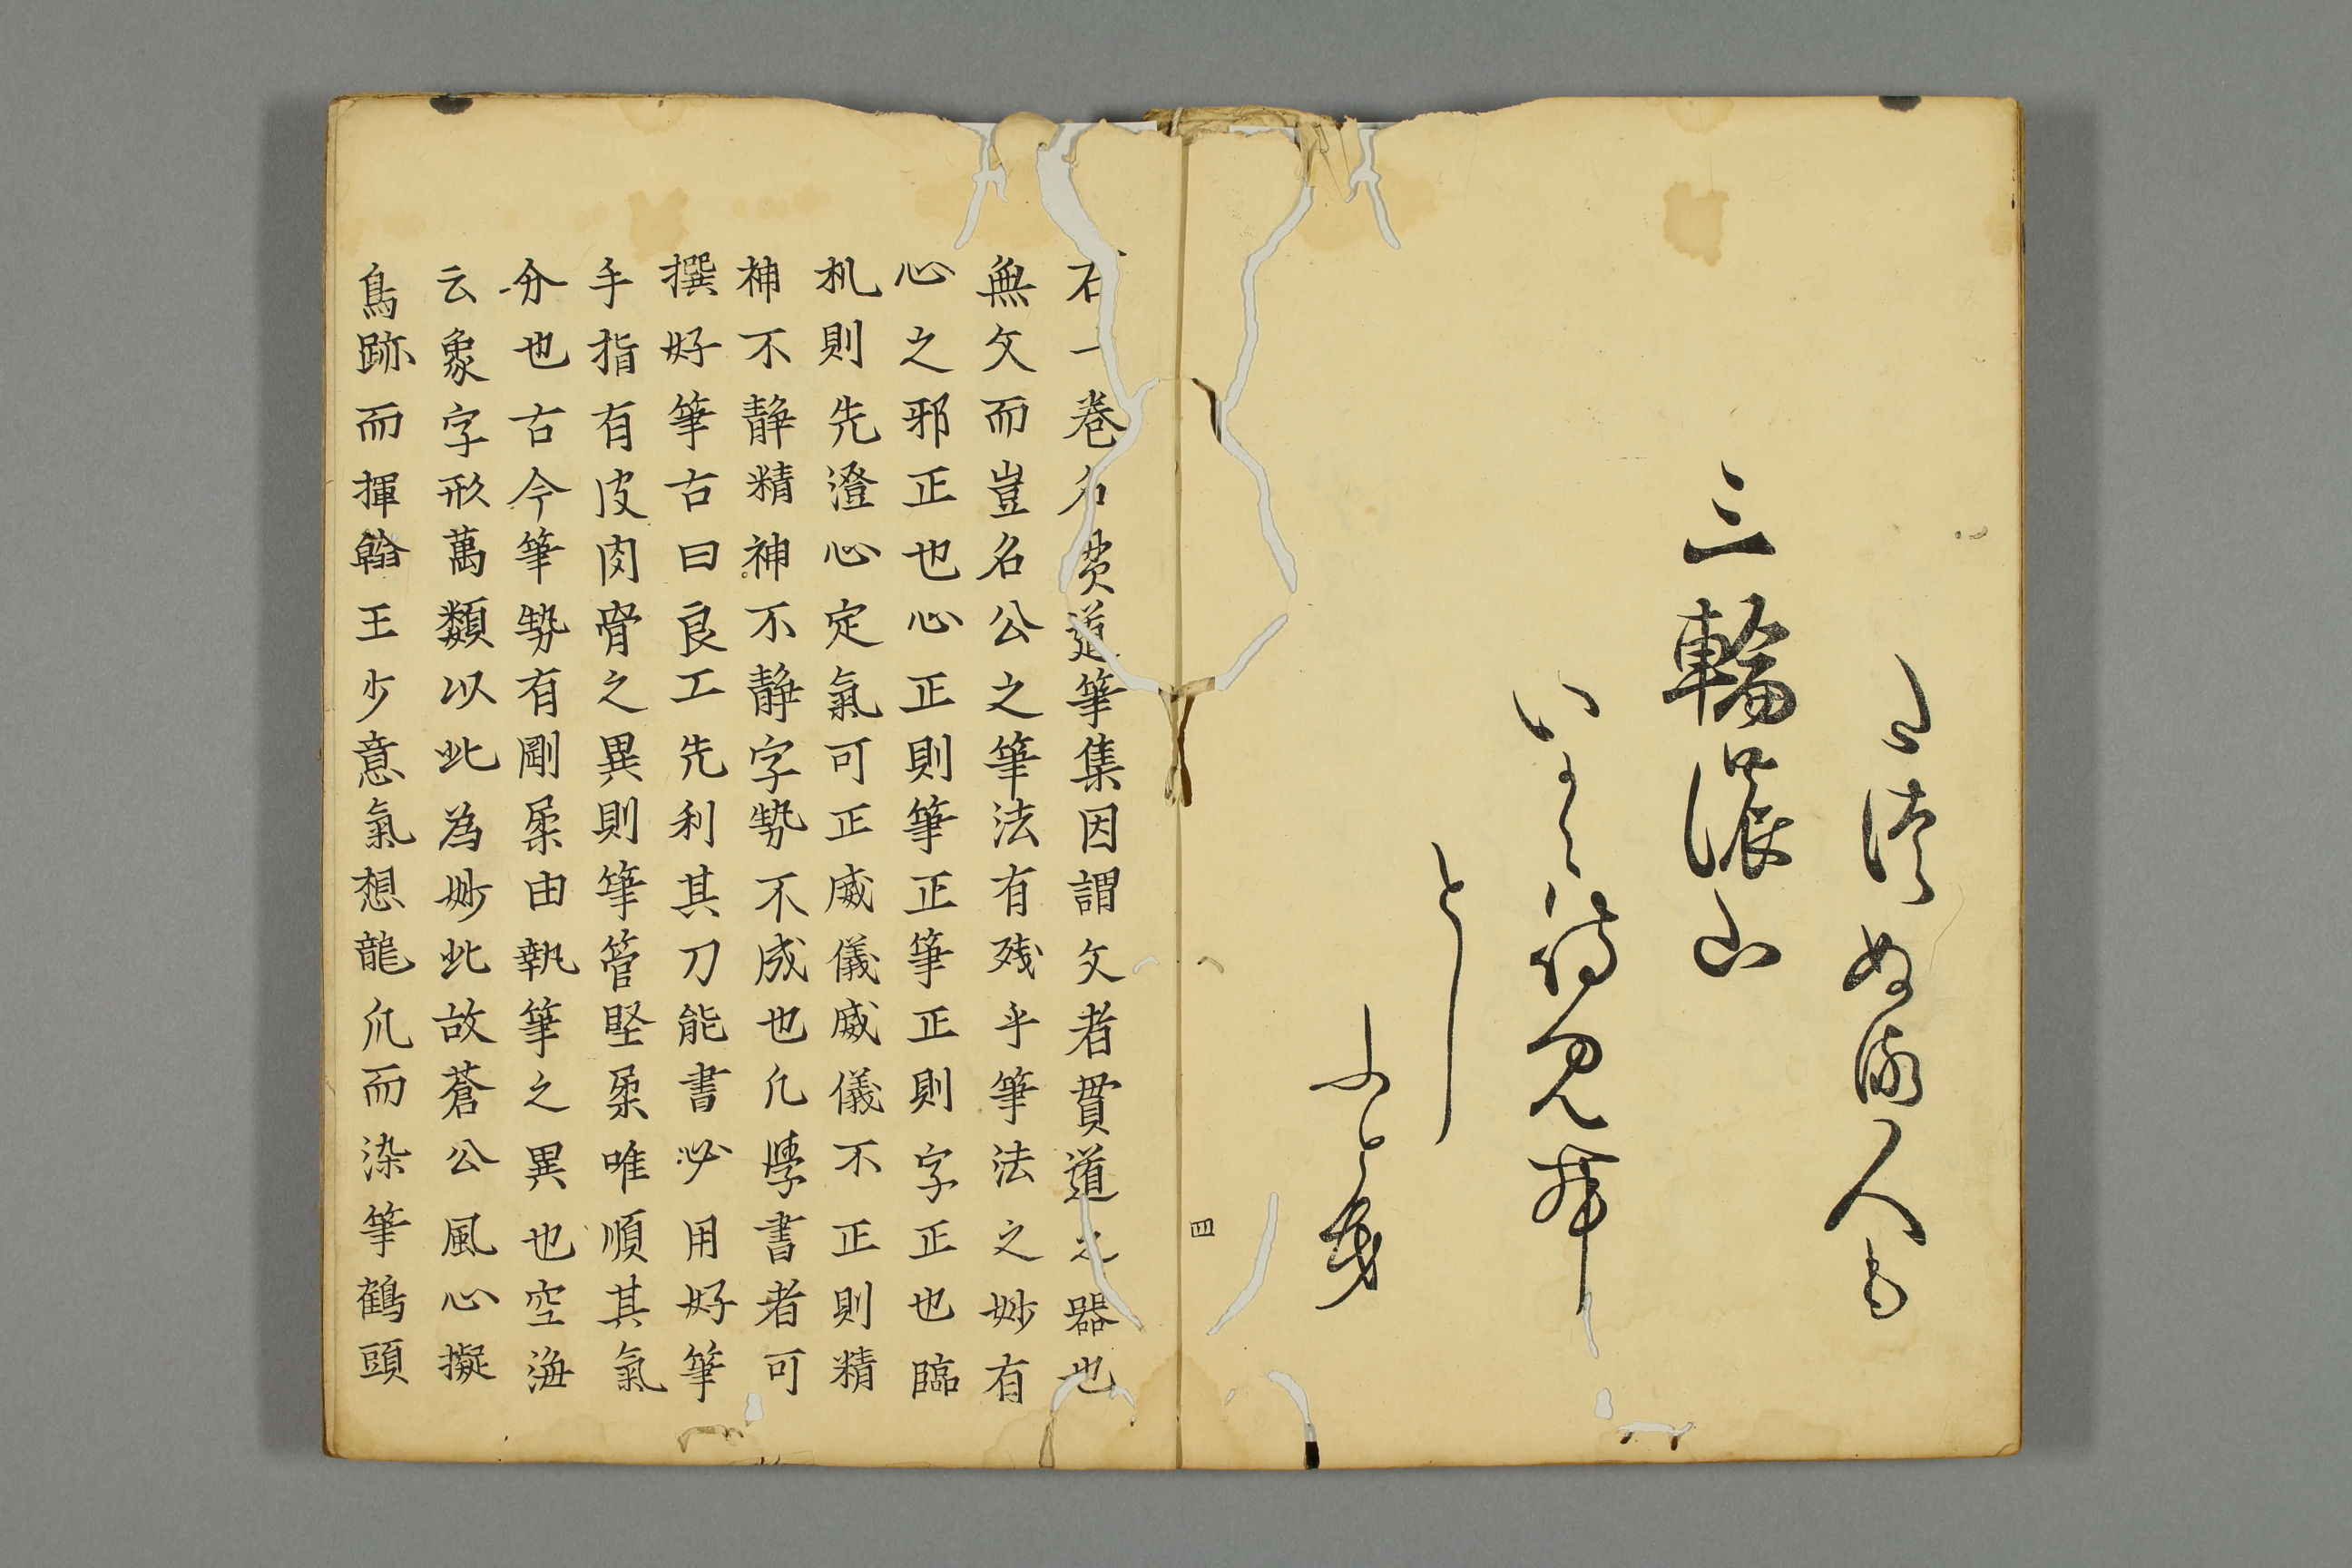 たつぬる人も
三輪濃山
いかゝ待見舞
とし
ふとも
四
右一巻名貫道筆集因謂文者貫道之器也
無文而豈名公之筆法有残乎筆法之妙有
心之邪正也心正則筆正筆正則字正也臨
机則先澄心定氣可正威儀威儀不正則精
神不静精神不静字勢不成也凡學書者可
撰好筆古曰良工先利其刀能書必用好筆
手指有皮肉骨之異則筆管堅柔唯順其氣
分也古今筆勢有剛柔由執筆之異也空海
云象字形萬類以此為妙此故蒼公風心擬
鳥跡而揮翰王少意氣想龍爪而染筆鶴頭